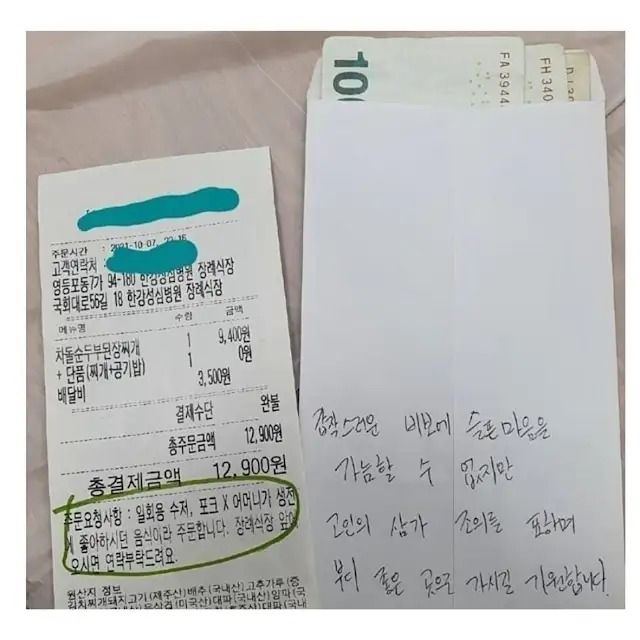 주문시간 : 2021-10-07, 22:15
고객연락처 :
영등포동7가 94-180 한강성심병원 장례식장
국회대로56길 18 한강성심병원 장례식장
메뉴명 수량 금액
차돌순두부된장찌개 1 9,400원
+ 단품(찌개+공기밥) 1 0원
배달비 3,500원
결제수단 완불
총주문금액 12,900원
총결제금액 12,900원
주문요청사항 : 일회용 수저, 포크 X 어머니가 생전
에 좋아하시던 음식이라 주문합니다. 장례식장 앞에
오시면 연락부탁드려요.
원산지 정보
김치찌개돼지고기(제주산) 배추(국내산) 고추가루(중
(미국산) 대파(국내산) 임파(국
대파(국내
100
FA 3944
FH 340
갑작스러운 비보에 슬픈 마음을
가늠할 수 없지만
고인의 삼가 조의를 표하며
부디 좋은 곳으로 가시길 기원합니다.